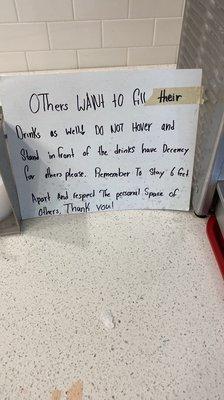 OTHers WANT to fill their
Drinks as well! DO NOT Hover and
Stand in front of the drinks have Decency
for others please. Remember To Stay 6 feet
Apart And respect The personal Space of
others. Thank you!